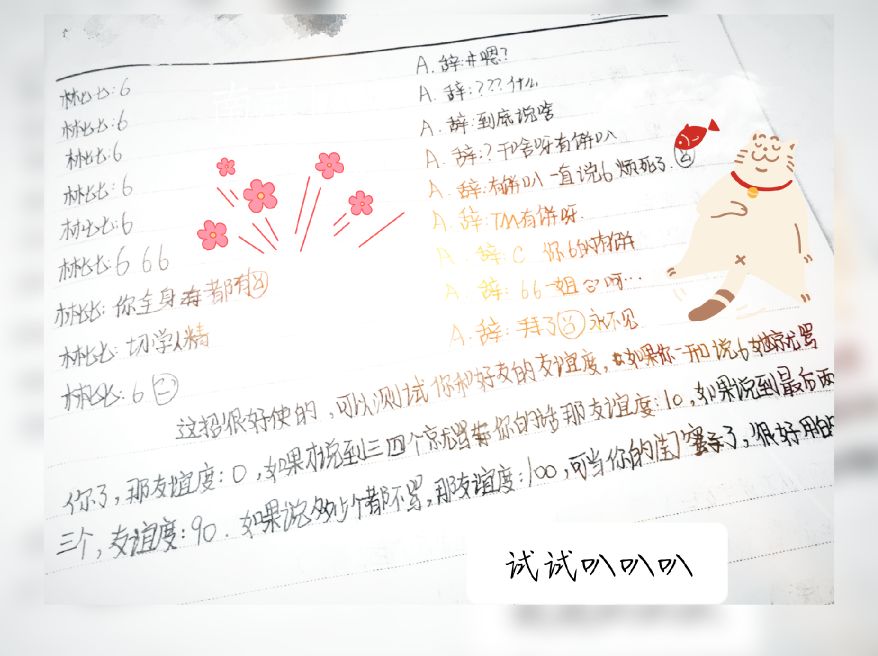 林比比:6
林比比:6
林比比:6
林比比:6
林比比:6
林比比:6 6 6
林比比:你全身都有
林比比:切学人精
林比比:6
A.辞:#嗯?
A.辞:???什么
A.辞:到底说啥
A.辞:?干啥呀有饼叭
A.辞:有饼叭一直说6烦死了.
A.辞:TM有饼呀.
A.辞:C 你6的有饼
A.辞:66一姐 呀…
A.辞:拜了 永不见
这招很好使的,可以测试你和好友的友谊度,如果你一开口说6她就骂
你了,那友谊度:0,如果才说到三四个就骂你的话那友谊度:10,如果说到最后两
三个,友谊度:90.如果说多少个都不骂,那友谊度:100,可当你的闺蜜了,很好用的
试试叭叭叭